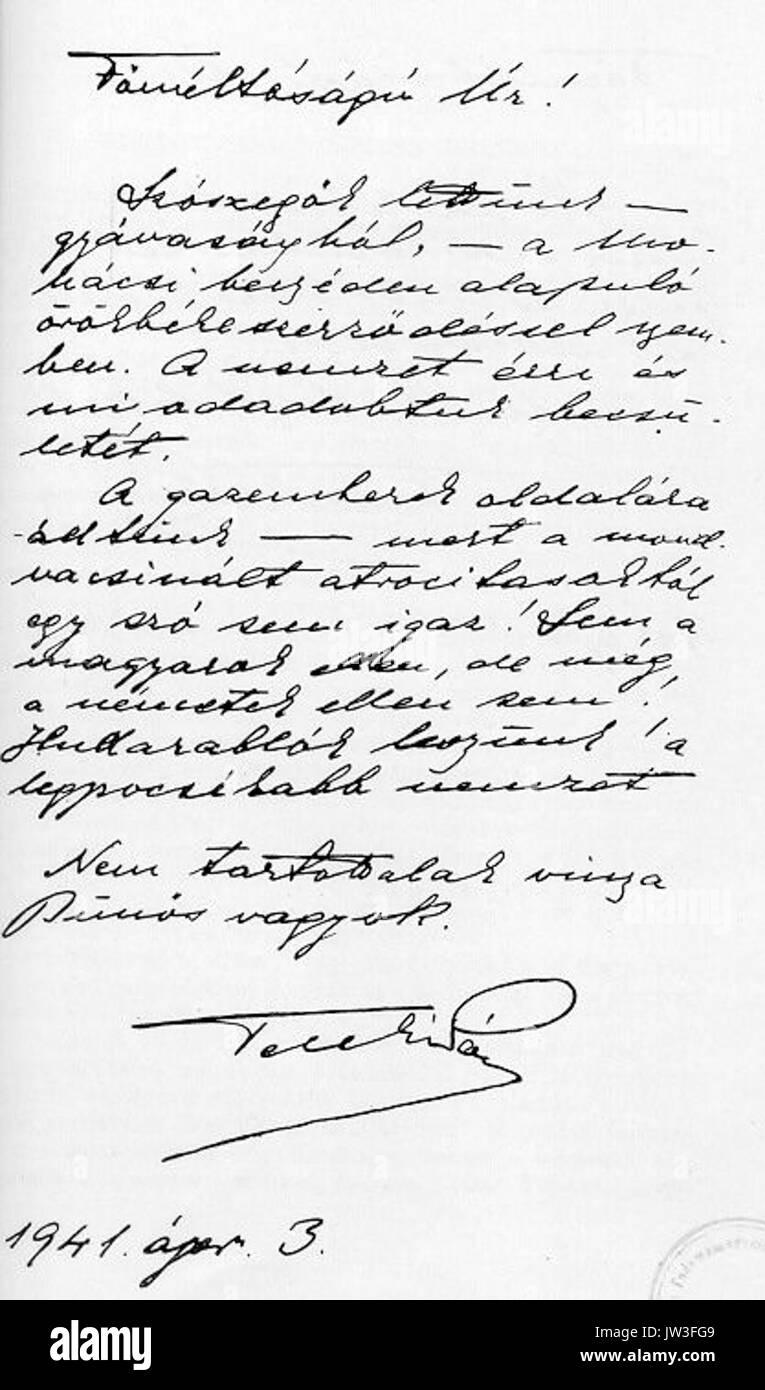 Főméltóságú Úr!
Szószegők lettünk —
gyávaságból, — a mo-
hácsi beszéden alapuló
örökbékeszerződéssel szem-
ben. A nemzet érzi és
mi odadobtuk becsü-
letét.
A gazemberek oldalára
álltunk — mert a mond-
vacsinált atrocitásokból
egy szó sem igaz! Sem a
magyarok ellen, de még
a németek ellen sem!
Hullarablók leszünk! a
legpocsékabb nemzet
Nem tartottalak vissza
Bűnös vagyok.
Teleki Pál
1941. ápr. 3.
alamy
Image ID: JW3FG9
www.alamy.com